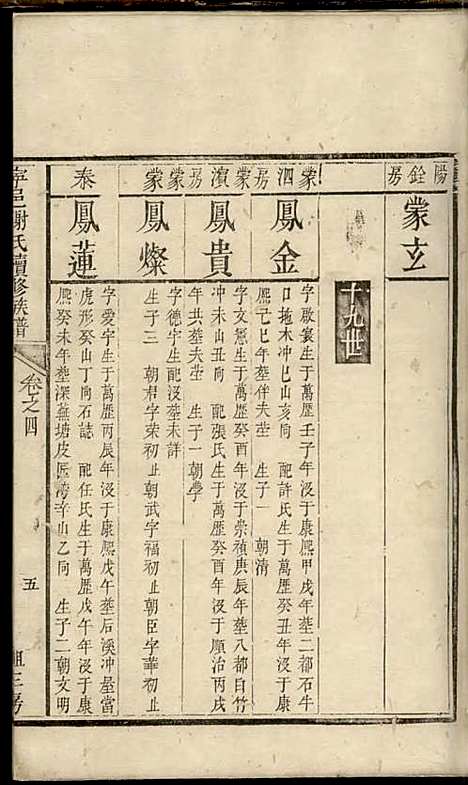 陽銓房
蒙玄
十九世
蒙泗房
鳳金
字啟寰生于萬歷壬子年沒于康熙甲戌年塟二都石牛
口拖木冲巳山亥向 配許氏生于萬歷癸丑年沒于康
熙己巳年塟伴夫塋 生子一 朝清
蒙濱房
鳳貴
字文憲生于萬歷癸酉年沒于崇禎庚辰年塟八都白竹
冲未山丑向 配張氏生于萬歷癸酉年沒于順治丙戌
年共塟夫塋 生子一朝學
蒙
鳳燦
字德宇生配沒塟未詳
生子三 朝君字榮初止朝武字福初止朝臣字華初止
泰
鳳蓮
字愛宇生于萬歷丙辰年沒于康熙戊午年塟后溪冲屋當
虎形癸山丁向石誌 配任氏生于萬歷戊午年沒于康
熙癸未年塟深塘皮匠灣辛山乙向 生子二朝文明
寧邑謝氏續修族譜
卷之四
五
三房